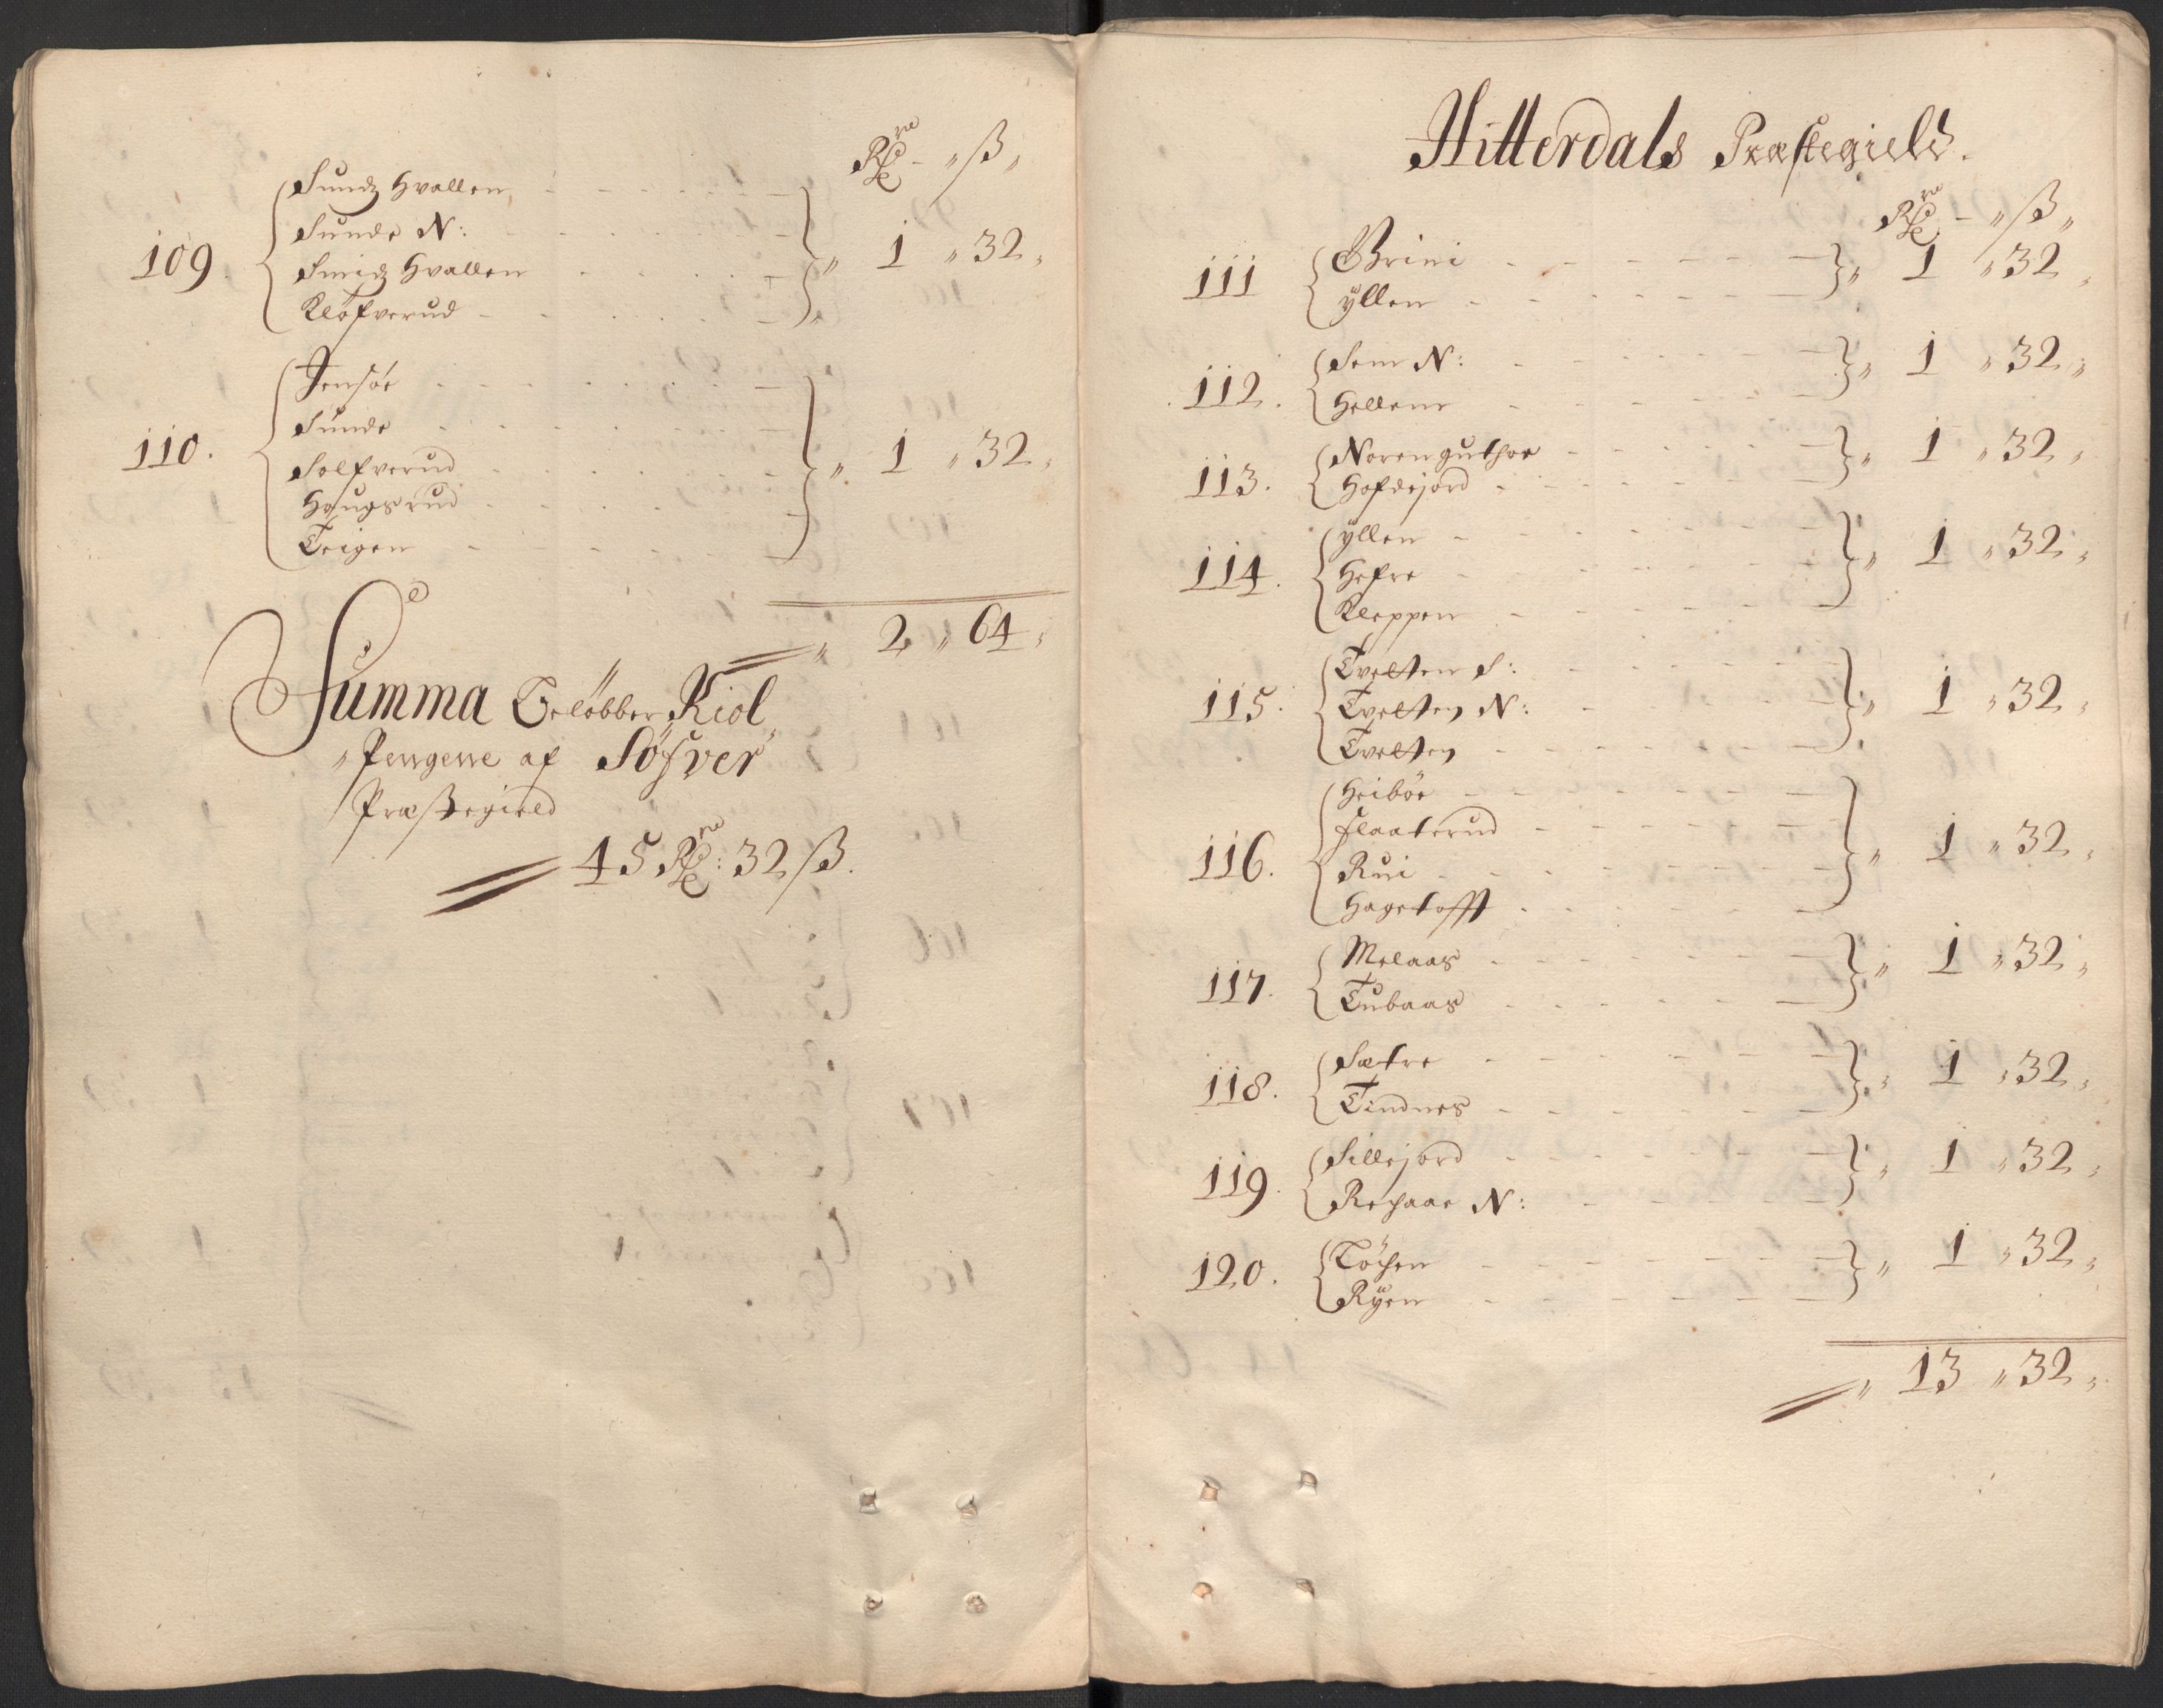 Rdr - „ ß „
109
Sundz Hvallen
Sunde N:
Smidz Hvallen
Kløfverud
„ 1 „ 32 „
110.
Jensøe
Sunde
Solfverud
Haugsrud
Teigen
„ 1 „ 32 „
„ 2 „ 64 „
Summa Beløbber Kiol
„Pengene af Søfver
Præstegield
45 Rdr: 32 ß.
Hitterdals Præstegield.
Rdr - „ ß „
111
Grini
Yllen
„ 1 „ 32 „
112.
Sem N:
Hellene
„ 1 „ 32 „
113.
Norenguthoe
Hofdejord
„ 1 „ 32 „
114.
Yllen
Hefre
Kleppen
„ 1 „ 32 „
115.
Tvelten S:
Tvelten N:
Tvelten
„ 1 „ 32 „
116.
Heibøe
Flaaterud
Rui
Hagetofft
„ 1 „ 32 „
117.
Melaas
Tubaas
„ 1 „ 32 „
118.
Sætre
Tindnes
„ 1 „ 32 „
119.
Sillejord
Rehaae N:
„ 1 „ 32 „
120.
Løhen
Ryen
„ 1 „ 32 „
„ 13 „ 32 „